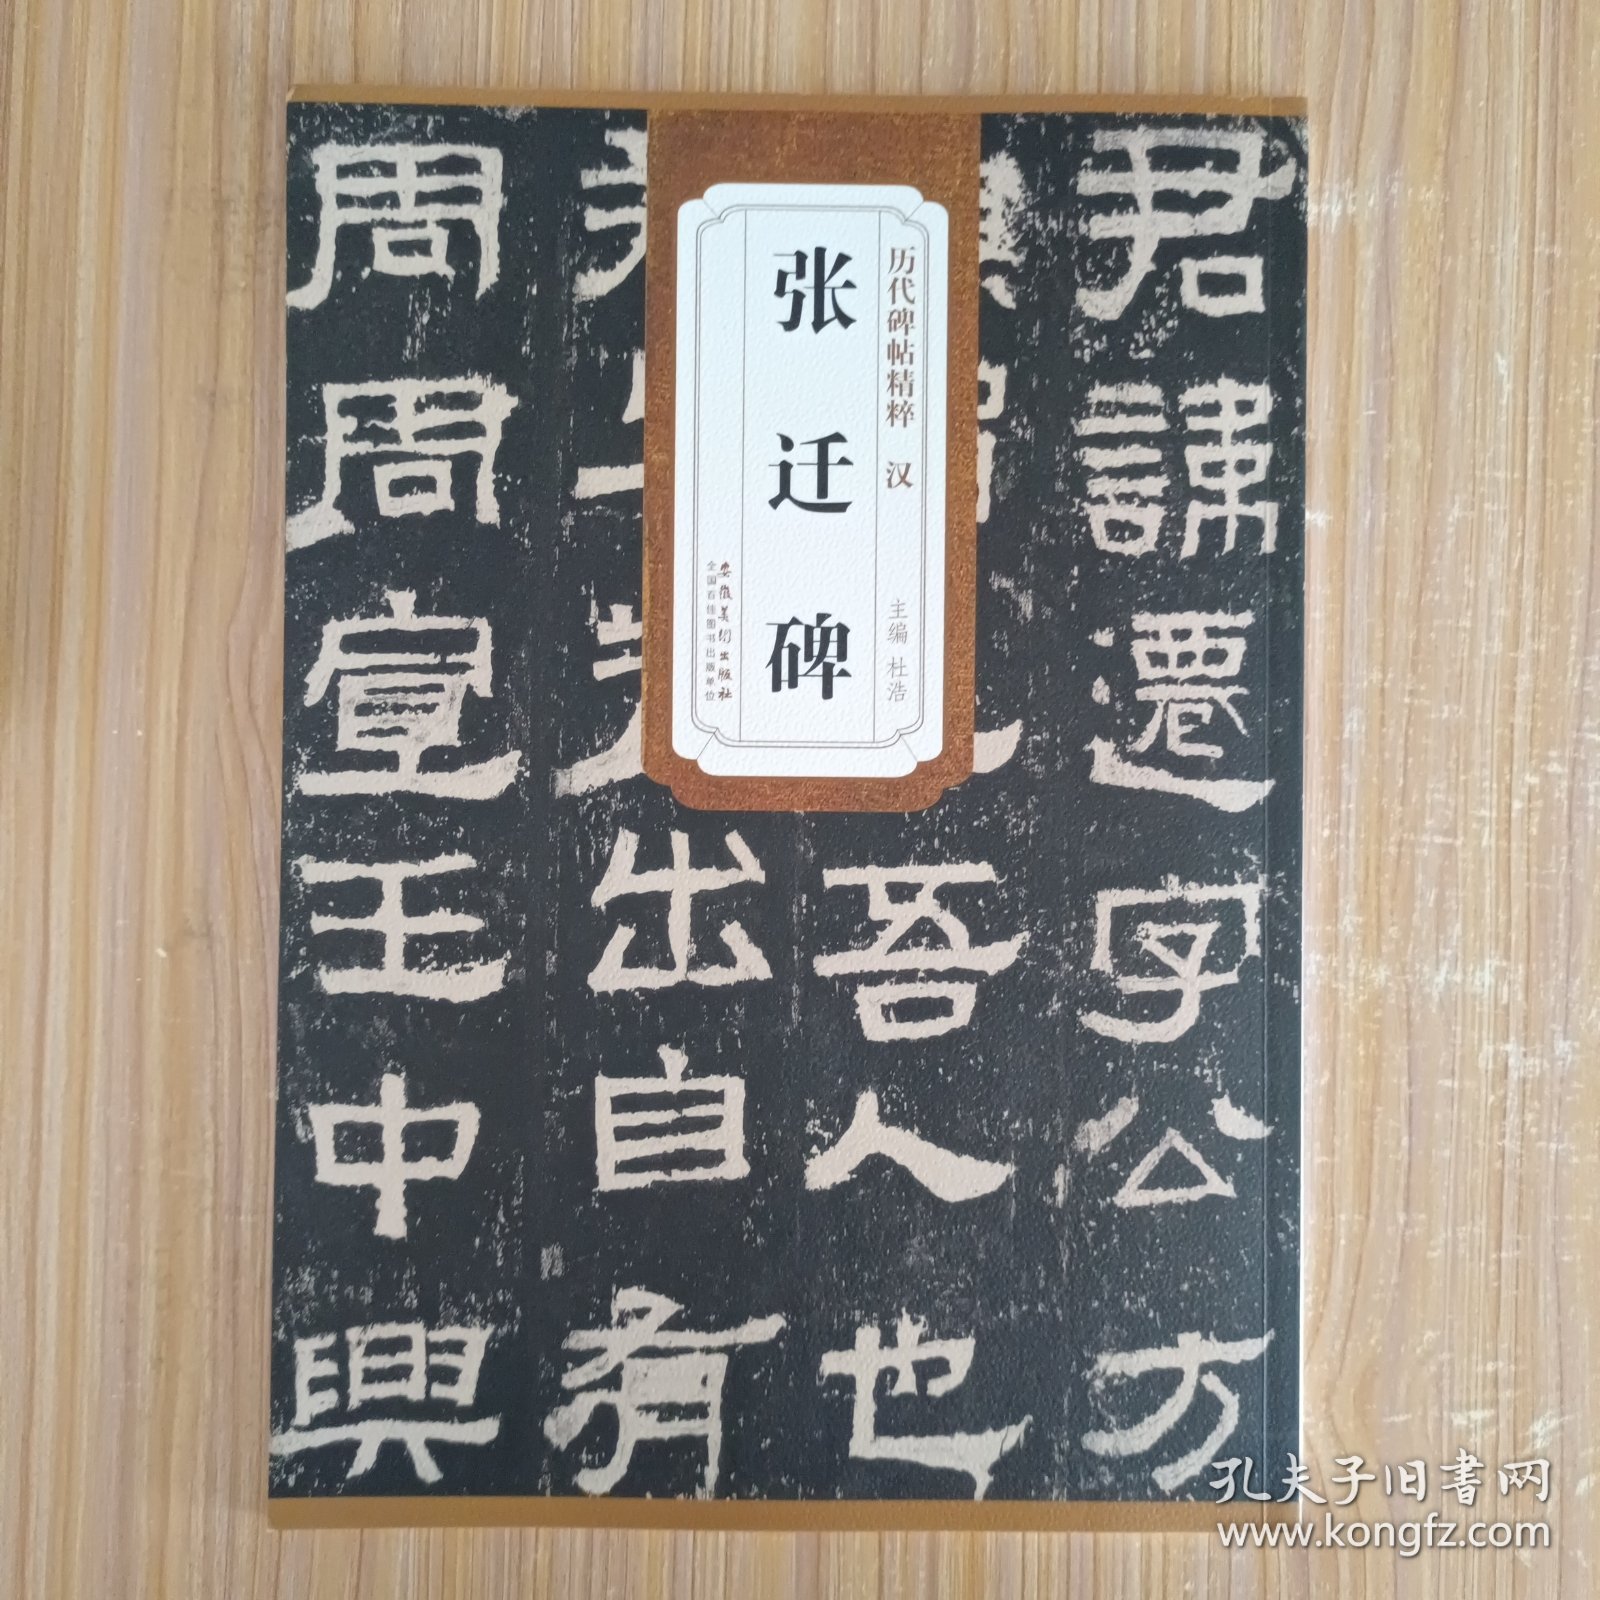 历代碑帖精粹 汉
主编 杜浩
张迁碑
安徽美术出版社
全国百佳图书出版单位
君諱遷字公方
吾人也
出自有
周周宣王中興
孔夫子旧書网
www.kongfz.com